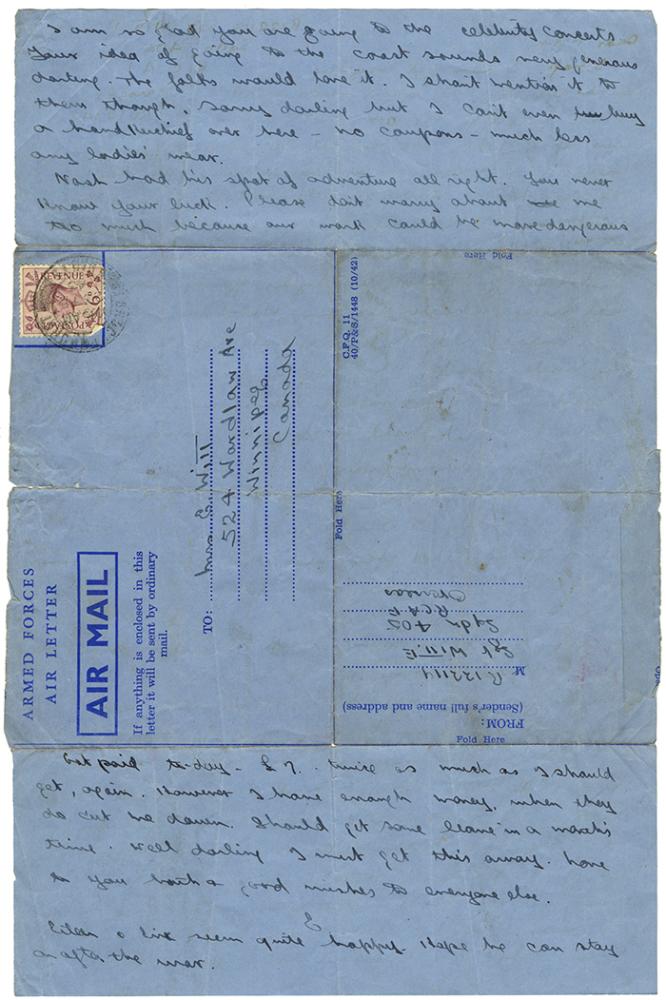 I am so glad you are going to the celebrity concerts
Your idea of going to the coast sounds very generous
darling. The folks would love it. I shan't mention it to
them though. Sorry darling but I can't even buy
a handkerchief over here – no coupons – much less
any ladies' wear.
Nash had his spot of adventure all right. You never
know your luck. Please don't worry about me
too much because our work could be more dangerous
REVENUE
POSTAGE
ARMED FORCES
AIR LETTER
AIR MAIL
If anything is enclosed in this
letter it will be sent by ordinary
mail.
TO: Mrs. E. Will
524 Wardlaw Ave
Winnipeg
Canada
Fold Here
C.F.Q. 11
40/P&S/1448 (10/42)
Fold Here
Fold Here
FROM:
(Sender's full name and address)
M R 122114
Sgt Will. E
Sqdn 402
RCAF
Overseas
Got paid to-day – £7. twice as much as I should
get, again. However I have enough money, when they
do cut me down. Should get some leave in a month's
time. Well darling I must get this away. Love
to you both & good wishes to everyone else.
E
Eileen & seem quite happy. Hope he can stay
on after the war.